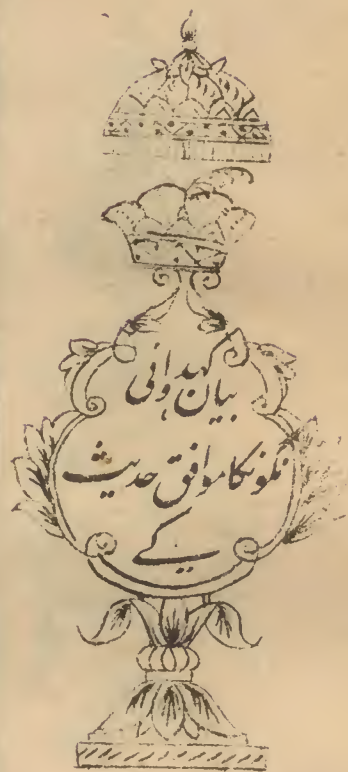 بیان کہدوانی
نگونکا موافق حدیث
کے